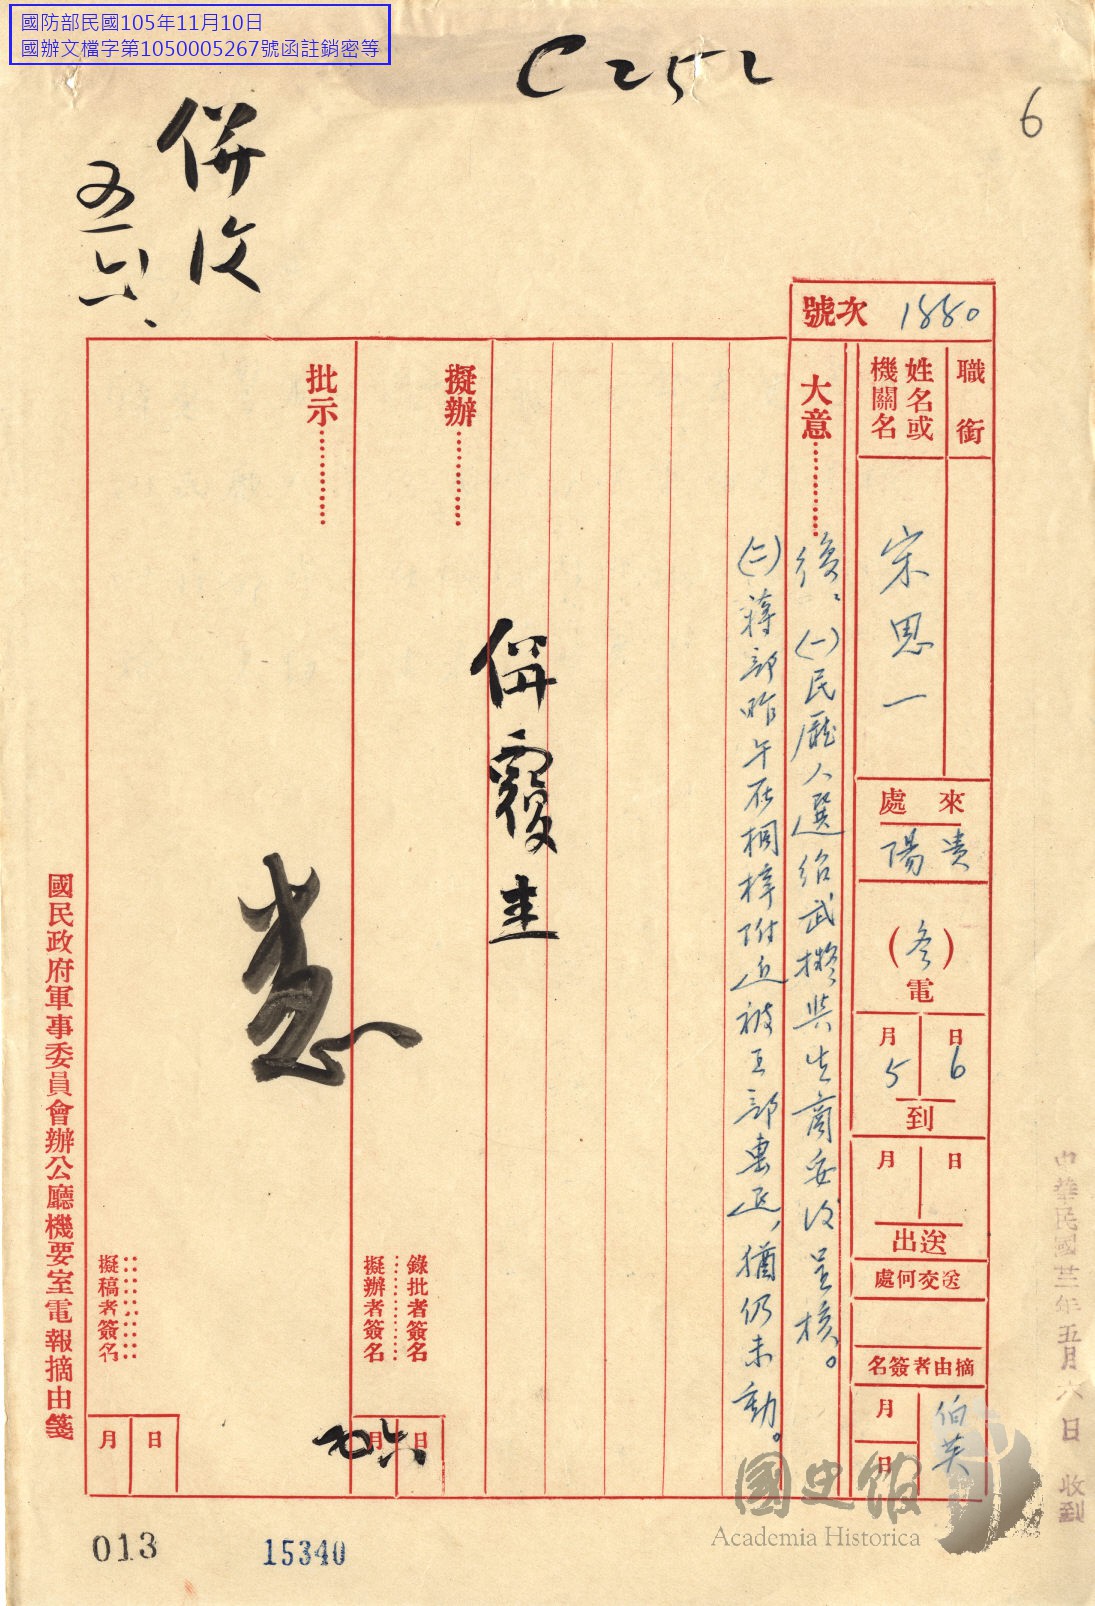 國防部民國105年11月10日
國辦文檔字第1050005267號函註銷密等
C252
6
併復
五六、
號次 1880
職銜
姓名或機關名
宋思一
來處
貴陽
(冬)電
5月6日到
月 日送出
送交何處
摘由者簽名
伯英
月 日
大意…………
後、(一)民廳人選紹武擬與生商妥後呈核。
(二)蔣部昨午在桐梓附近被王部惠迎,猶仍未動。
擬辦…………
併覆
批示…………
錄批者簽名
擬辦者簽名
五月六日
擬稿者簽名
月 日
國民政府軍事委員會辦公廳機要室電報摘由箋
中華民國卅二年五月六日收到
013
15340
國史館
Academia Historica